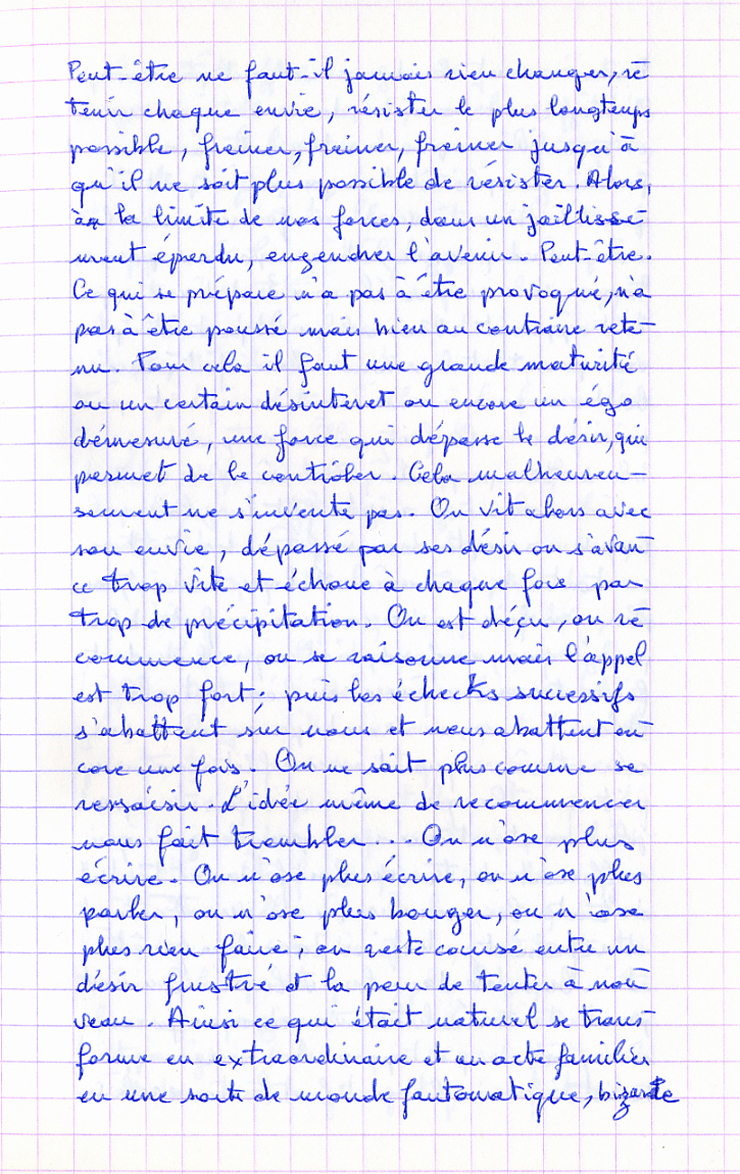 Peut-être ne faut-il jamais rien changer, re-
tenir chaque envie, résister le plus longtemps
possible, freiner, freiner, freiner jusqu'à
qu'il ne soit plus possible de résister. Alors,
à la limite de nos forces, dans un jaillisse-
ment éperdu, engendrer l'avenir. Peut-être.
Ce qui se prépare n'a pas à être provoqué, n'a
pas à être poussé mais bien au contraire rete-
nu. Pour cela il faut une grande maturité
ou un certain désinteret ou encore un égo
démesuré, une force qui dépasse le désir, qui
permet de le contrôler. Cela malheureu-
sement ne s'invente pas. On vit alors avec
son envie, dépassé par ses désir on s'avan-
ce trop vite et échoue à chaque fois par
trop de précipitation. On est déçu, on re-
commence, on se raisonne mais l'appel
est trop fort; puis les échecks successifs
s'abattent sur nous et nous abattent en-
core une fois. On ne sait plus comme se
ressaisir. L'idée même de recommencer
nous fait trembler... On n'ose plus
écrire. On n'ose plus écrire, on n'ose plus
parler, on n'ose plus bouger, on n'ose
plus rien faire; on reste coinsé entre un
désir frustré et la peur de tenter à nou-
veau. Ainsi ce qui était naturel se trans-
forme en extraordinaire et un acte familier
en une sorte de monde fantomatique, bizarre